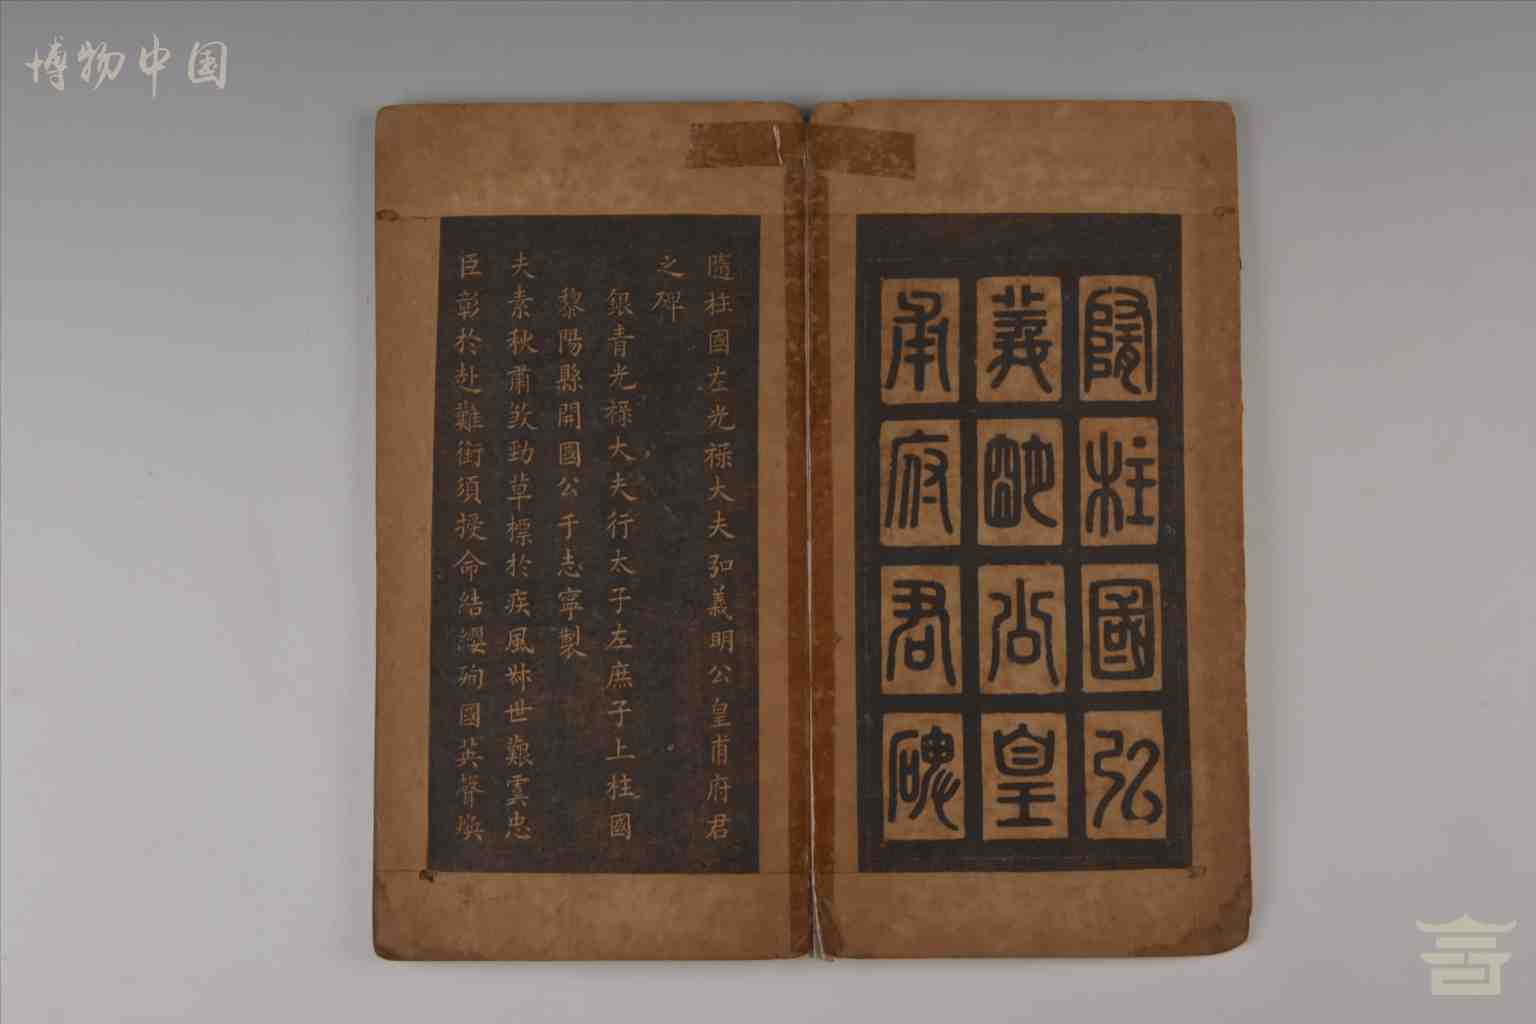 博物中国
隨柱國弘
義朙公皇
甫府君碑
隨柱國左光祿大夫弘義明公皇甫府君
之碑
銀青光祿大夫行太子左庶子上柱國
黎陽縣開國公于志寧製
夫素秋肅煞勁草標於疾風叔世艱虞忠
臣彰於赴難銜須授命結纓殉國英聲煥